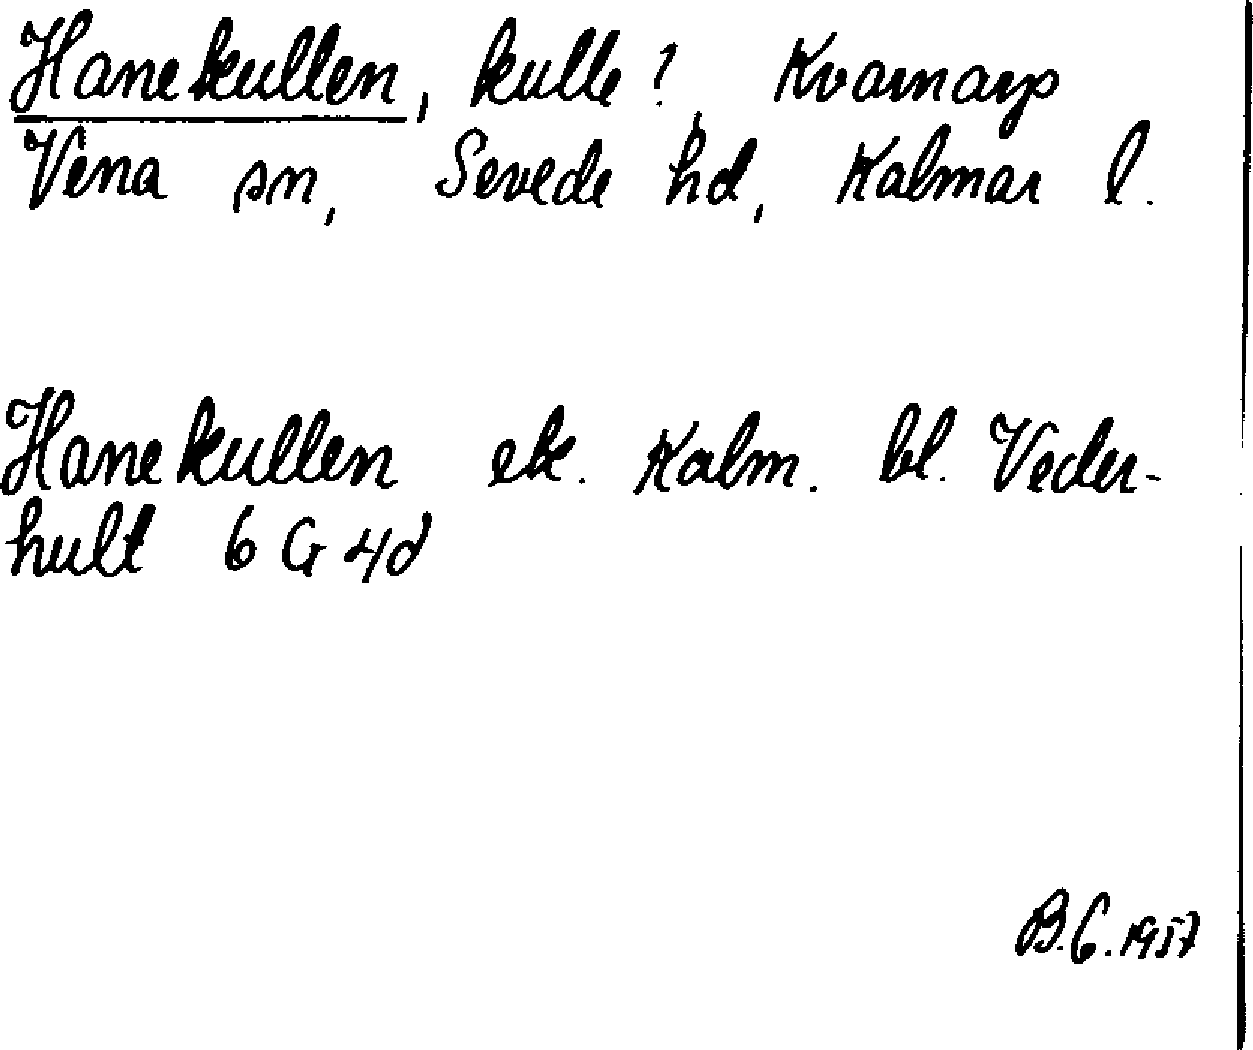 Hanekullen, kulle?, Kvarnarp
Vena sn, Sevede hd, Kalmar l.
Hanekullen ek. Kalm. bl. Veder-
hult 6 G 4d
B.C. 1957